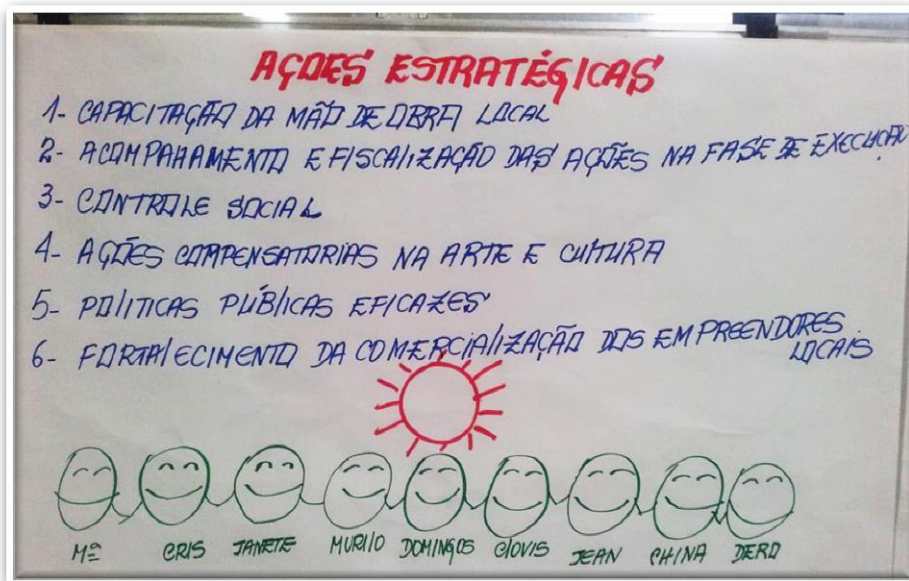 AÇÕES ESTRATÉGICAS
1- CAPACITAÇÃO DA MÃO DE OBRA LOCAL
2- ACOMPAHAMENTO E FISCALIZAÇÃO DAS AÇÕES NA FASE DE EXECUÇÃO
3- CONTROLE SOCIAL
4- AÇÕES COMPENSATORIAS NA ARTE E CULTURA
5- POLITICAS PÚBLICAS EFICAZES
6- FORTALECIMENTO DA COMERCIALIZAÇÃO DOS EMPREENDORES
LOCAIS
Mª CRIS JANETE MURILO DOMINGOS CLOVIS JEAN CHINA DERO